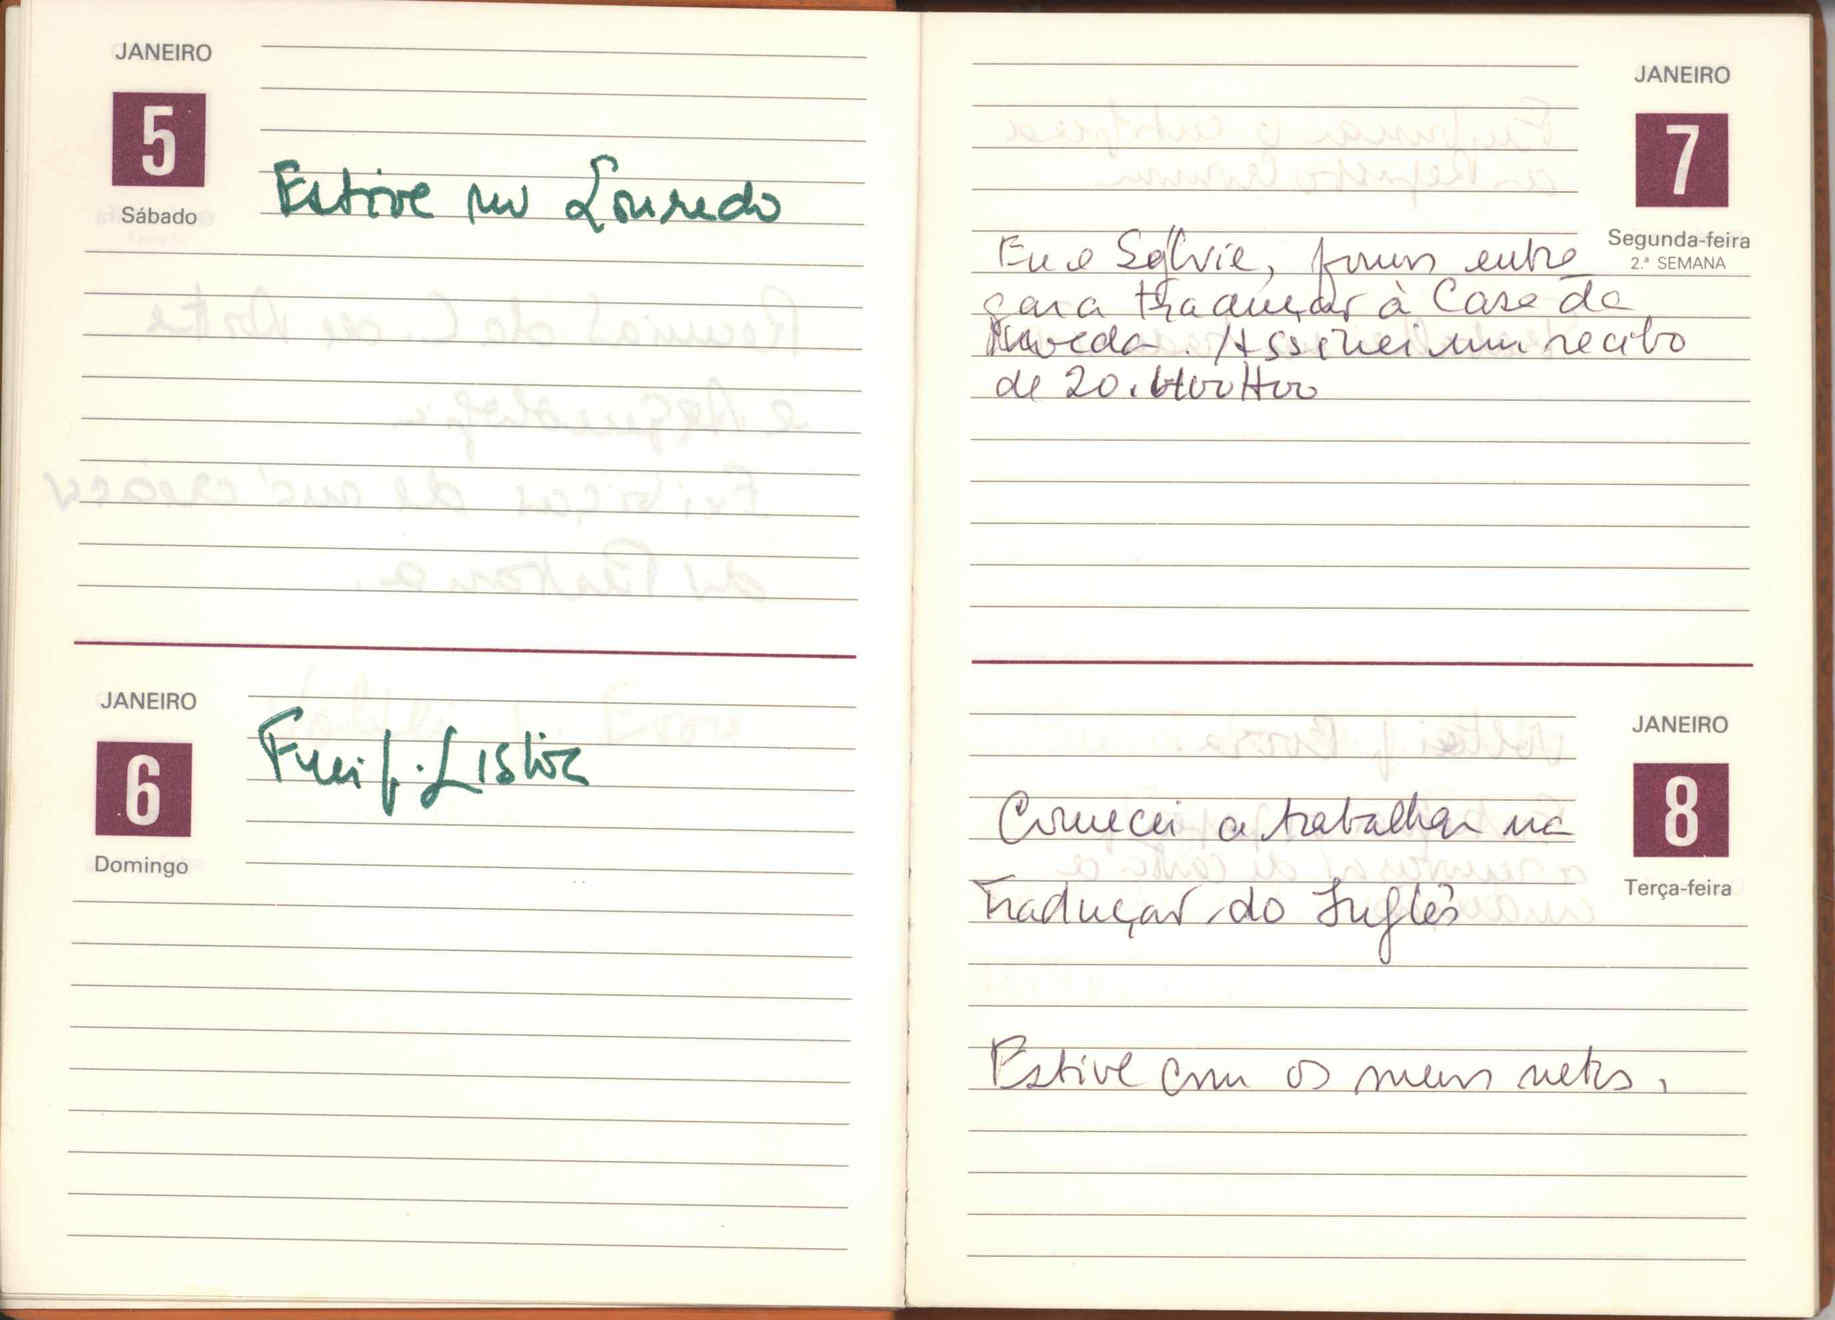 JANEIRO
5
Sábado
Estive no Louredo
JANEIRO
6
Domingo
Fui p. Lisboa
JANEIRO
7
Segunda-feira
2.ª SEMANA
Eu e Sylvie, fomos entre
gar a tradução à Casa da
Moeda. Assinei um recibo
de 20.
JANEIRO
8
Terça-feira
Comecei a trabalhar na
Tradução do Inglês
Estive com os meus netos.